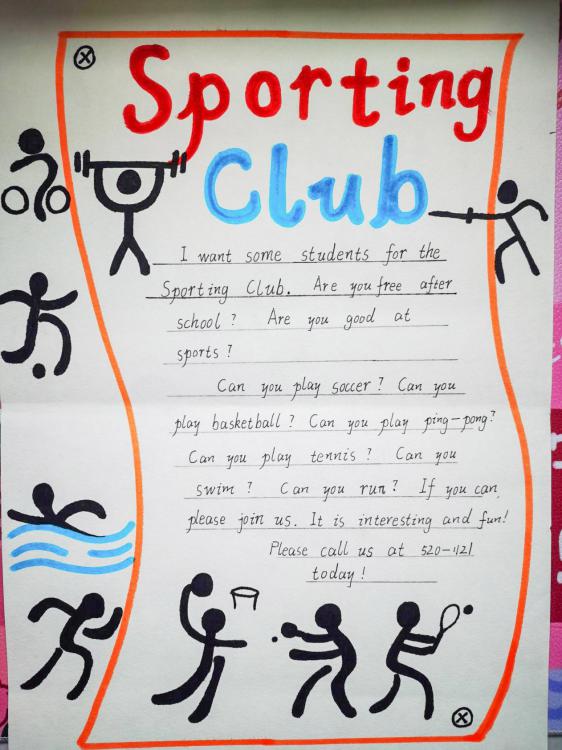 Sporting
Club
I want some students for the
Sporting Club. Are you free after
school? Are you good at
sports?
Can you play soccer? Can you
play basketball? Can you play ping-pong?
Can you play tennis? Can you
swim? Can you run? If you can,
please join us. It is interesting and fun!
Please call us at 520-1121
today!